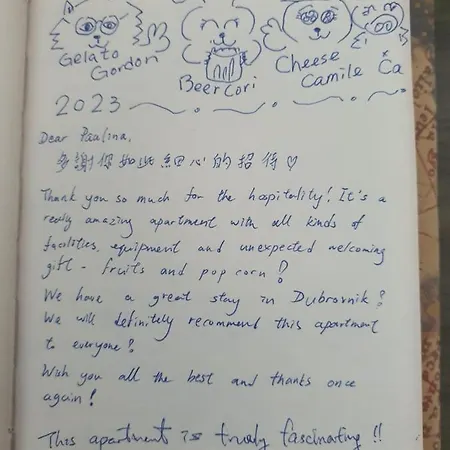 Gelato Gordon
Beer Cori
Cheese Camile
Ča
2023
Dear Paulina,
多謝你如此細心的招待♡
Thank you so much for the hospitality! It's a
really amazing apartment with all kinds of
facilities, equipment and unexpected welcoming
gift - fruits and pop corn!
We have a great stay in Dubrovnik!
We will definitely recommend this apartment
to everyone!
Wish you all the best and thanks once
again!
This apartment is truely fascinating !!